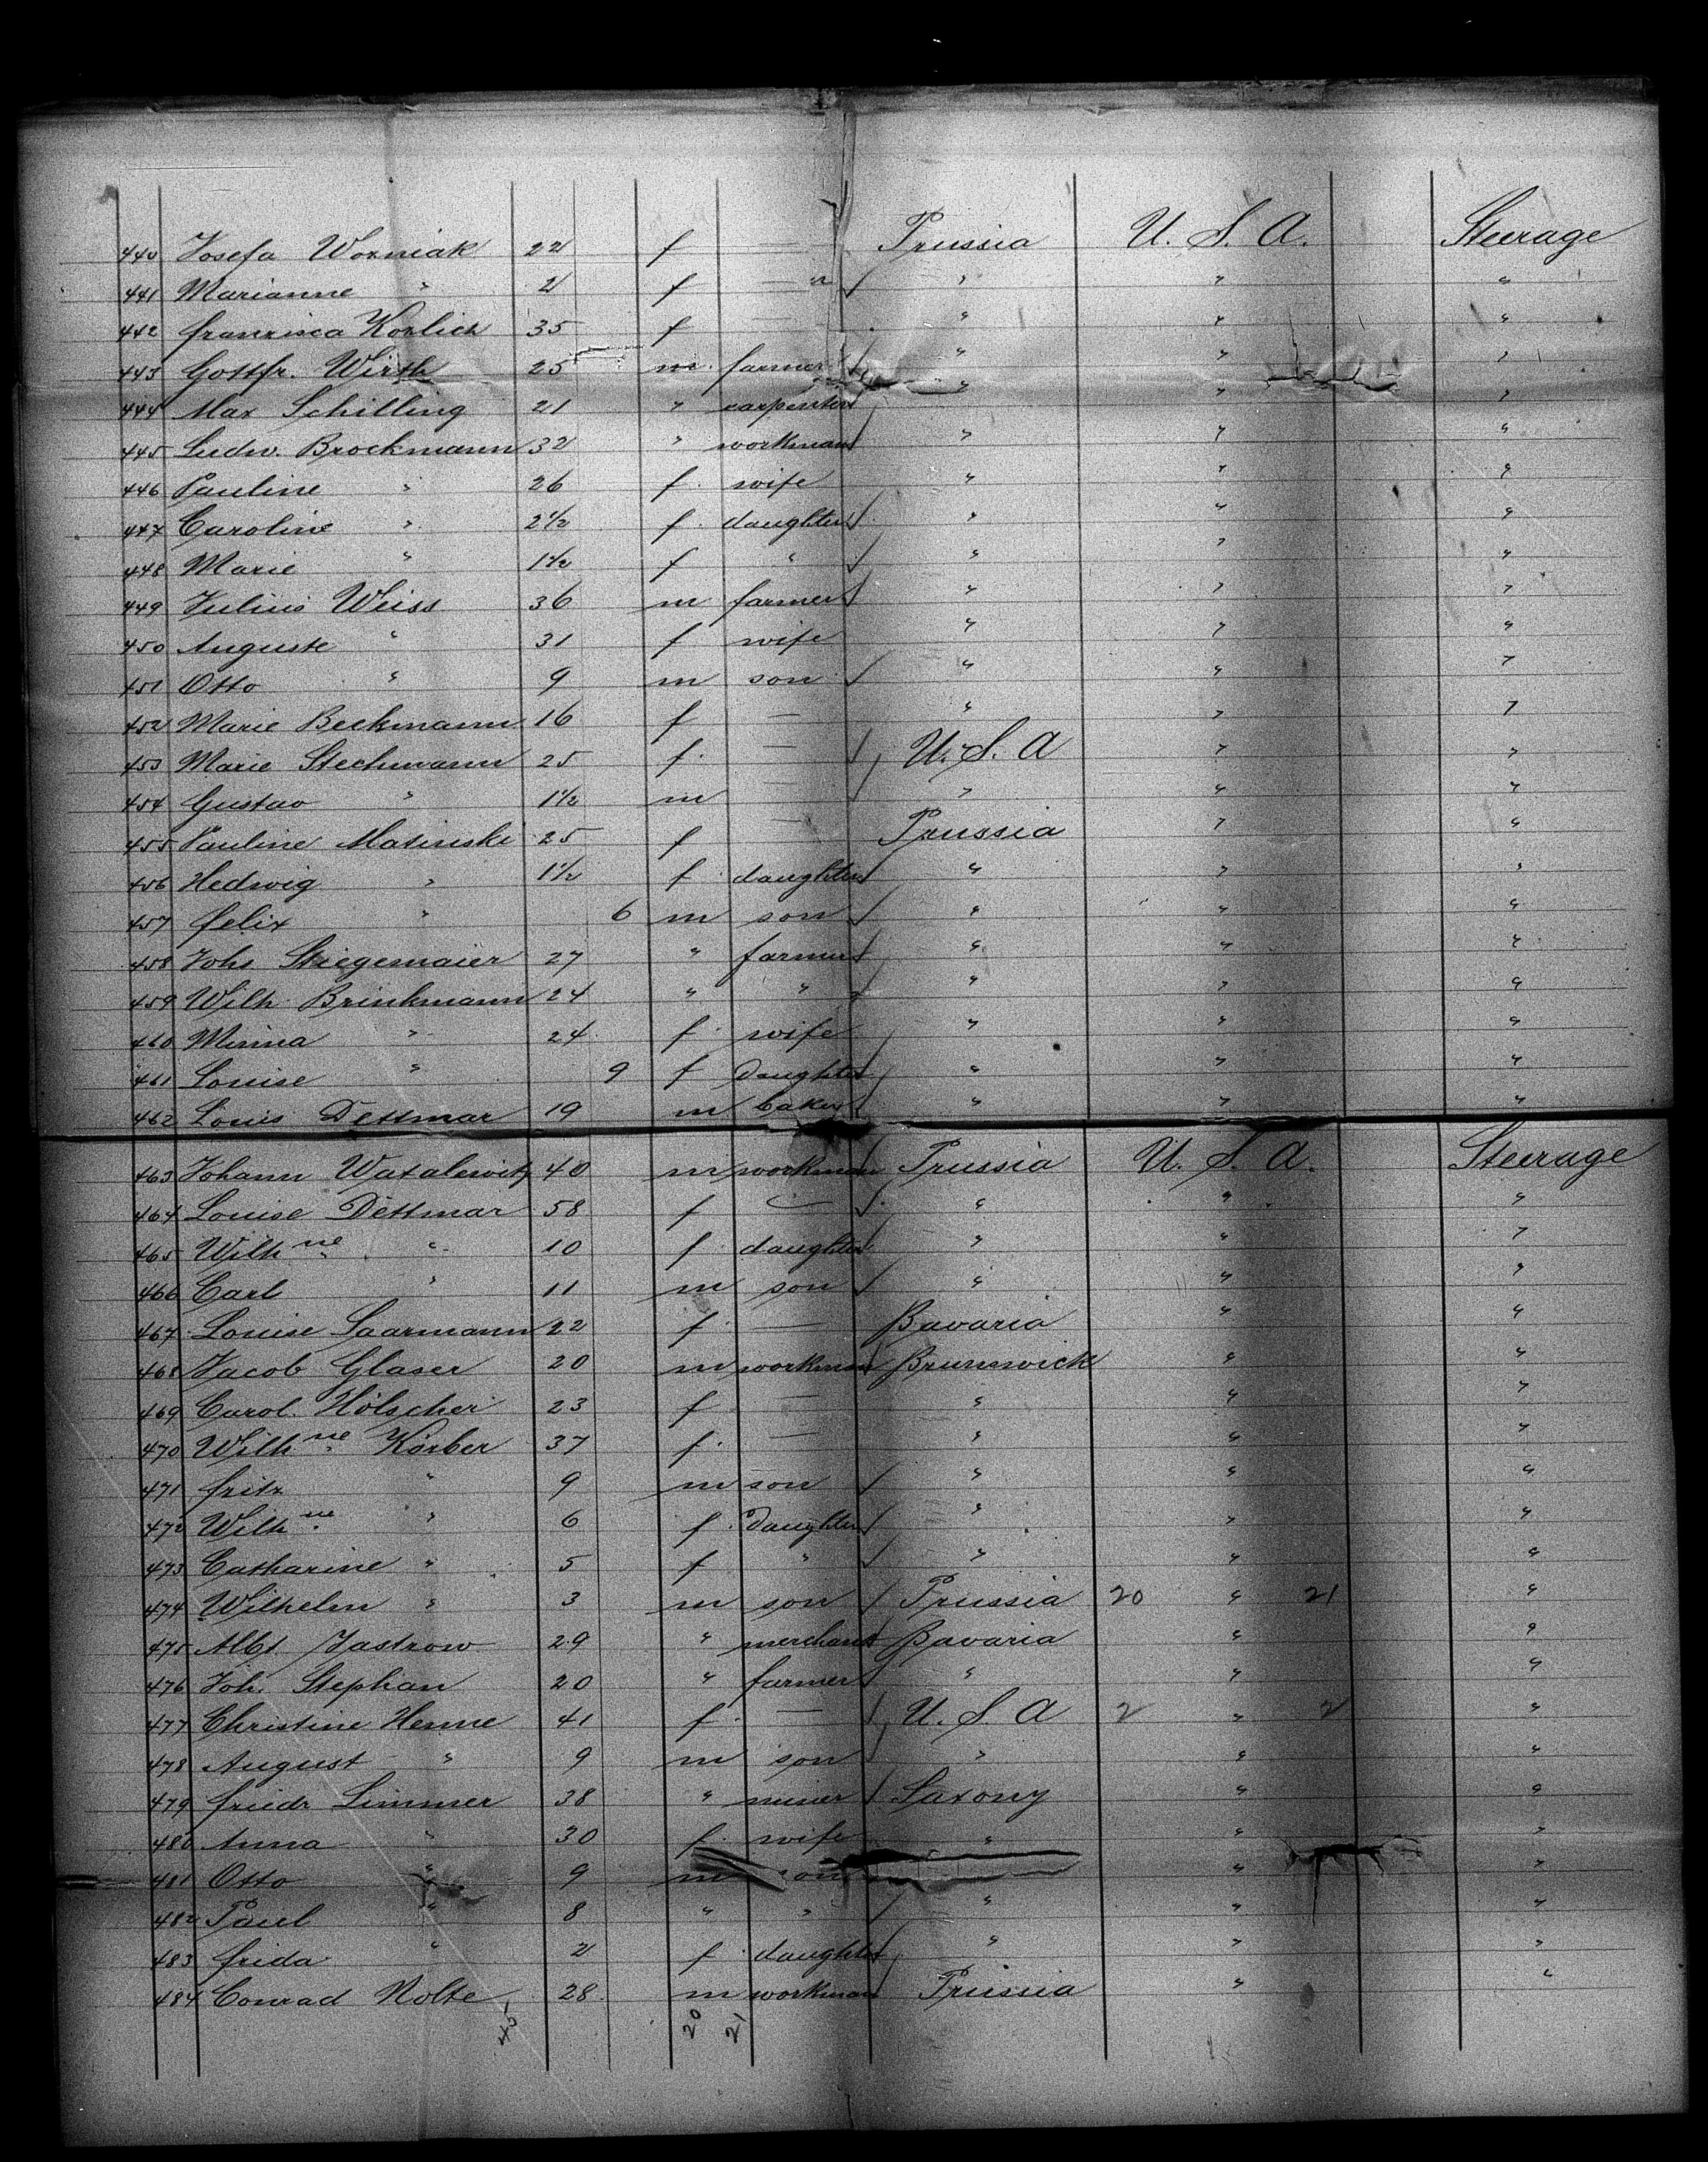 440 Josefa Wozniak 22 f — Prussia U. S. A. Steerage
441 Marianne " 2 f " " " "
442 Franzisca Kozlich 35 f — " " "
443 Gottfr. Wirth 25 m. farmer " " "
444 Max Schilling 21 " carpenter " " "
445 Ludw. Brockmann 32 " workman " " "
446 Pauline " 26 f. wife " " "
447 Caroline " 2½ f. daughter " " "
448 Marie " 1½ f " " " "
449 Julius Weiss 36 m farmer " " "
450 Auguste " 31 f wife " " "
451 Otto " 9 m son " " "
452 Marie Beckmann 16 f — " " "
453 Marie Stechmann 25 f. — U. S. A " "
454 Gustav " 1½ m — " " "
455 Pauline Matinski 25 f — Prussia " "
456 Hedwig " 1½ f daughter " " "
457 Felix " 6 m son " " "
458 Johs Stiegemaier 27 " farmer " " "
459 Wilh. Brinkmann 24 " " " " "
460 Minna " 24 f wife " " "
461 Louise " 9 f daughter " " "
462 Louis Dettmar 19 m baker " " "
463 Johann Watalewitz 40 m workman Prussia U. S. A. Steerage
464 Louise Dettmar 58 f — " " "
465 Wilhne " 10 f. daughter " " "
466 Carl " 11 m son " " "
467 Louise Saarmann 22 f. — Bavaria " "
468 Jacob Glaser 20 m workman Brunswick " "
469 Carol. Hölscher 23 f — " " "
470 Wilhne Körber 37 f. — " " "
471 Fritz " 9 m son " " "
472 Wilhne " 6 f. daughter " " "
473 Catharine " 5 f " " " "
474 Wilhelm " 3 m son Prussia 20 " 21 "
475 Albt. Jastrow 29 " merchant Bavaria " "
476 Joh. Stephan 20 " farmer " " "
477 Christine Henne 41 f. — U. S. A 2 " 2 "
478 August " 9 m son " " "
479 Friedr Limmer 38 " miner Saxony " "
480 Anna " 30 f. wife " " "
481 Otto " 9 m son " "
482 Paul " 8 " " " " "
483 Frida " 2 f daughter " " "
484 Conrad Nolte 28 m workman Prussia " "
45 20 21